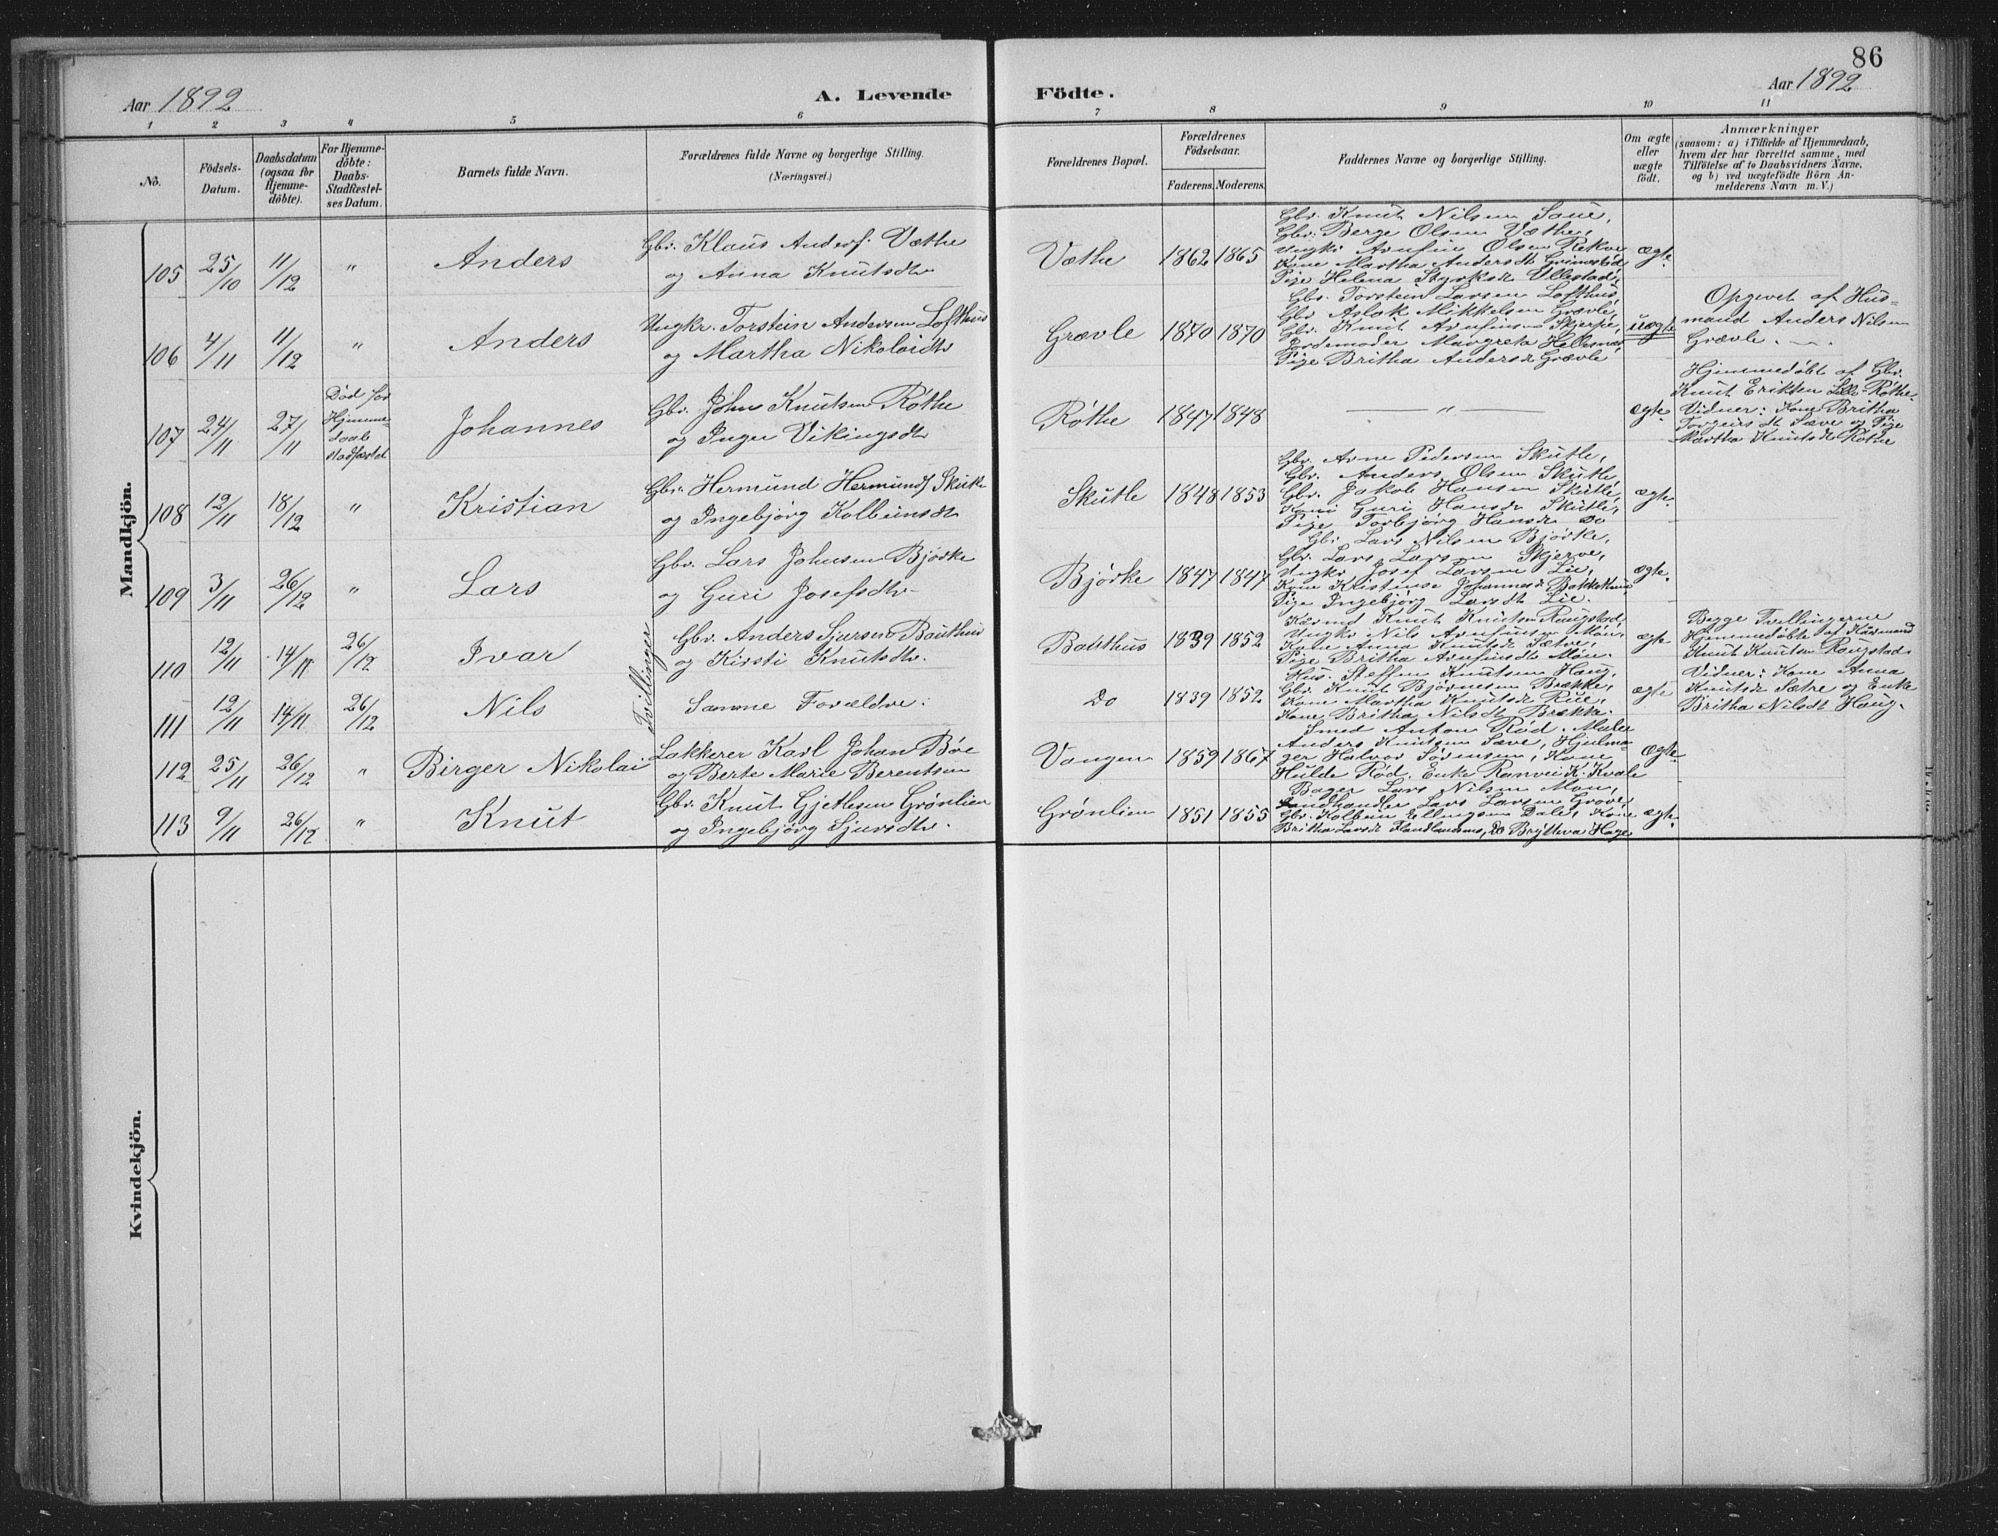 86
Aar 1892
A. Levende
Födte.
Aar 1892
1 2 3 4 5 6 7 8 9 10 11
No.
Födsels-
Datum.
Daabsdatum
(ogsaa for
Hjemme-
döbte).
For Hjemme-
döbte:
Daabs-
Stadfæstel-
ses Datum.
Barnets fulde Navn.
Forældrenes fulde Navne og borgerlige Stilling.
(Næringsvei.)
Forældrenes Bopæl.
Forældrenes
Födselsaar.
Faderens. Moderens.
Faddernes Navne og borgerlige Stilling.
Om ægte
eller
uægte
født.
Anmærkninger
(saasom: a) i Tilfælde af Hjemmedaab,
hvem der har forrettet samme, med
Tilföielse af to Daabsvidners Navne,
og b) ved uægtefödte Börn An-
melderens Navn m. V.)
Mandkjön.
105 25/10 11/12 " Anders
Gbr. Klaus Anders. Væthe
og Anna Knutsdtr
Væthe 1862 1865
Gbr. Knut Nilsen Saue,
Gbr. Berge Olsen Væthe,
Ungkr Arnfin Olsen Rekve
Kone Martha Andersdt Grimestad
Pige Helena Styrksdt Ullestad
ægte
106 4/11 11/12 " Anders
Ungkr. Torstein Andersen Lofthus
og Martha Nikolaidtr
Grævle 1870 1870
Gbr. Torstein Larsen Lofthus,
Gbr Aslak Mikkelsen Grævle,
Gbr. Knut Arnfinsen Skjerpe,
Jordemoder Margreta Hellesnæs
Pige Britha Andersdt Grævle
uægte
Opgevet af Hus-
mand Anders Nilsen
Grævle.
107 24/11 27/11
Död før
Hjemme-
daab
stadfæstet
Johannes
Gbr. John Knutsen Røthe
og Inger Vikingsdtr
Røthe 1847 1848 — " — ægte
Hjemmedøbt af Gbr.
Knut Eriksen Lille Røthe.
Vidner: Kone Britha
Torgeirsdt Sæve og Pige
Martha Knutsdt Røthe
108 12/11 18/12 " Kristian
Gbr. Hermund Hermunds. Skutle
og Ingebjørg Kolbeinsdtr
Skutle 1848 1853
Gbr. Arne Pedersen Skutle,
Gbr. Anders Olsen Skutle,
Gbr. Jakob Hansen Skutle,
Kone Guri Hansdt Skutle,
Pige Torbjørg Hansdt Do
ægte
109 3/11 26/12 " Lars
Gbr. Lars Johnsen Bjørke
og Guri Josefsdtr
Bjørke 1847 1847
Gbr. Lars Nilsen Bjørke,
Gbr. Lars Larsen Skjerve,
Ungkr. Josef Larsen Lie,
Kone Kristense Johannesdt Bakkethun
Pige Ingebjørg Larsdt Lie.
ægte.
Tvillinger
110 12/11 14/11 26/12 Ivar
Gbr. Anders Sjursen Bauthus
og Kirsti Knutsdtr.
Bauthus 1839 1852
Kårmd Knut Knutsen Rangstad,
Ungkr Nils Arnfinsen Møn,
Kone Anna Knutsdt Sætre,
Pige Britha Arnfinsdt Møn.
ægte
Begge Tvillingerne
Hjemmedøbte af Kårmand
Knut Knutsen Rangstad.
Vidner: Kone Anna
Knutsdt Sætre og Enke
Britha Nilsdt Haug.
111 12/11 14/11 26/12 Nils
Samme Forældre.
Do 1839 1852
Hus. Steffen Knutsen Haug,
Gbr. Knut Bjørnesen Brække,
Kone Martha Knutsdt Rue,
Kone Britha Nilsdt Brække.
ægte
112 25/11 26/12 " Birger Nikolai
Lakkerer Karl Johan Bøe
og Berte Marie Berentsen
Vangen 1859 1867
Smed Anton Rød, Maler
Anders Knutsen Sæve, Hjulma-
ger Halvor Sørensen, Kone
Hulde Rød, Enke Ranvei K. Kvale
ægte
113 9/11 26/12 " Knut
Gbr. Knut Gjetlesen Grønlien
og Ingebjørg Sjursdtr.
Grønlien 1851 1855
Bager Lars Nilsen Møn,
Landhandler Lars Larsen Grove,
Gbr. Kolbein Ellingsen Dale, Kone
Britha Larsdt, Do Bryteva Hage
ægte.
Kvindekjön.